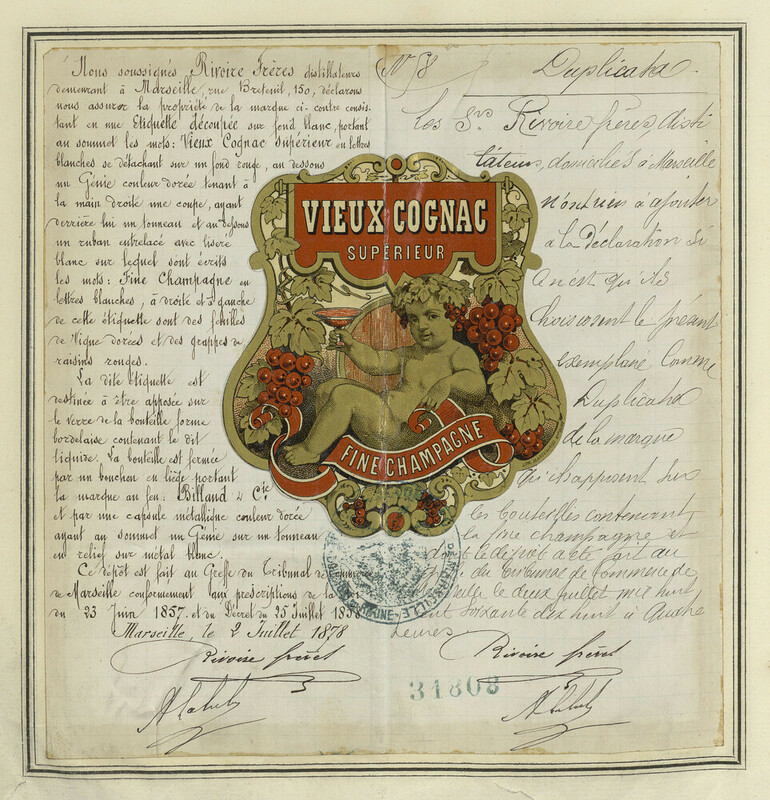 Nous soussignés Rivoire Frères distillateurs
demeurant à Marseille, rue Breteuil, 150, déclarons
nous assurer la propriété de la marque ci-contre consis
tant en une Etiquette découpée sur fond blanc, portant
au sommet les mots: Vieux Cognac Supérieur en lettres
blanches se détachant sur un fond rouge, au dessous
un Génie couleur dorée tenant à
la main droite une coupe, ayant
derrière lui un tonneau et au dessous
un ruban entrelacé avec liseré
blanc sur lequel sont écrits
les mots: Fine Champagne en
lettres blanches, à droite et à gauche
de cette étiquette sont des feuilles
de Vigne dorées et des grappes de
raisins rouges.
La dite étiquette est
destinée à être apposée sur
le verre de la bouteille forme
bordelaise contenant le dit
liquide. La bouteille est fermée
par un bouchon en liège portant
la marque au feu: Billand & Cie
et par une capsule métallique couleur dorée
ayant au sommet un Génie sur un tonneau
en relief sur métal blanc.
Ce dépôt est fait au Greffe du Tribunal de commerce
de Marseille conformement aux prescriptions de la loi
du 23 Juin 1857. et du Décret du 25 Juillet 1858
Marseille, le 2 Juillet 1878
Rivoire frères
VIEUX COGNAC
SUPÉRIEUR
FINE CHAMPAGNE
No 58
Duplicata
Les Srs Rivoire frères, disti
lateurs, domiciliés à Marseille
n'ont rien à ajouter
à la Déclaration si
ce n'est qu'ils
choisissent le présent
exemplaire comme
Duplicata
de la marque
qu'ils apposent sur
les bouteilles contenant
la fine champagne et
dont le dépôt a été fait au
du Tribunal de Commerce de
le deux juillet mil huit
cent soixante dix huit à quatre
heures
Rivoire frères
31808